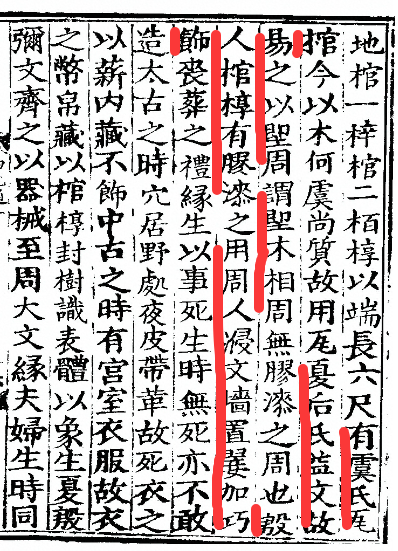 地棺一梓棺二栢椁以端長六尺有虞氏瓦
棺今以木何虞尚質故用瓦夏后氏益文故
易之以堲周謂堲木相周無膠漆之周也殷
人棺椁有膠漆之用周人浸文墻置翣加巧
飾喪葬之禮緣生以事死生時無死亦不敢
造太古之時穴居野處夜皮帶革故死衣之
以薪内藏不飾中古之時有宮室衣服故衣
之幣帛藏以棺椁封樹識表體以象生夏殷
彌文齊之以器械至周大文緣夫婦生時同